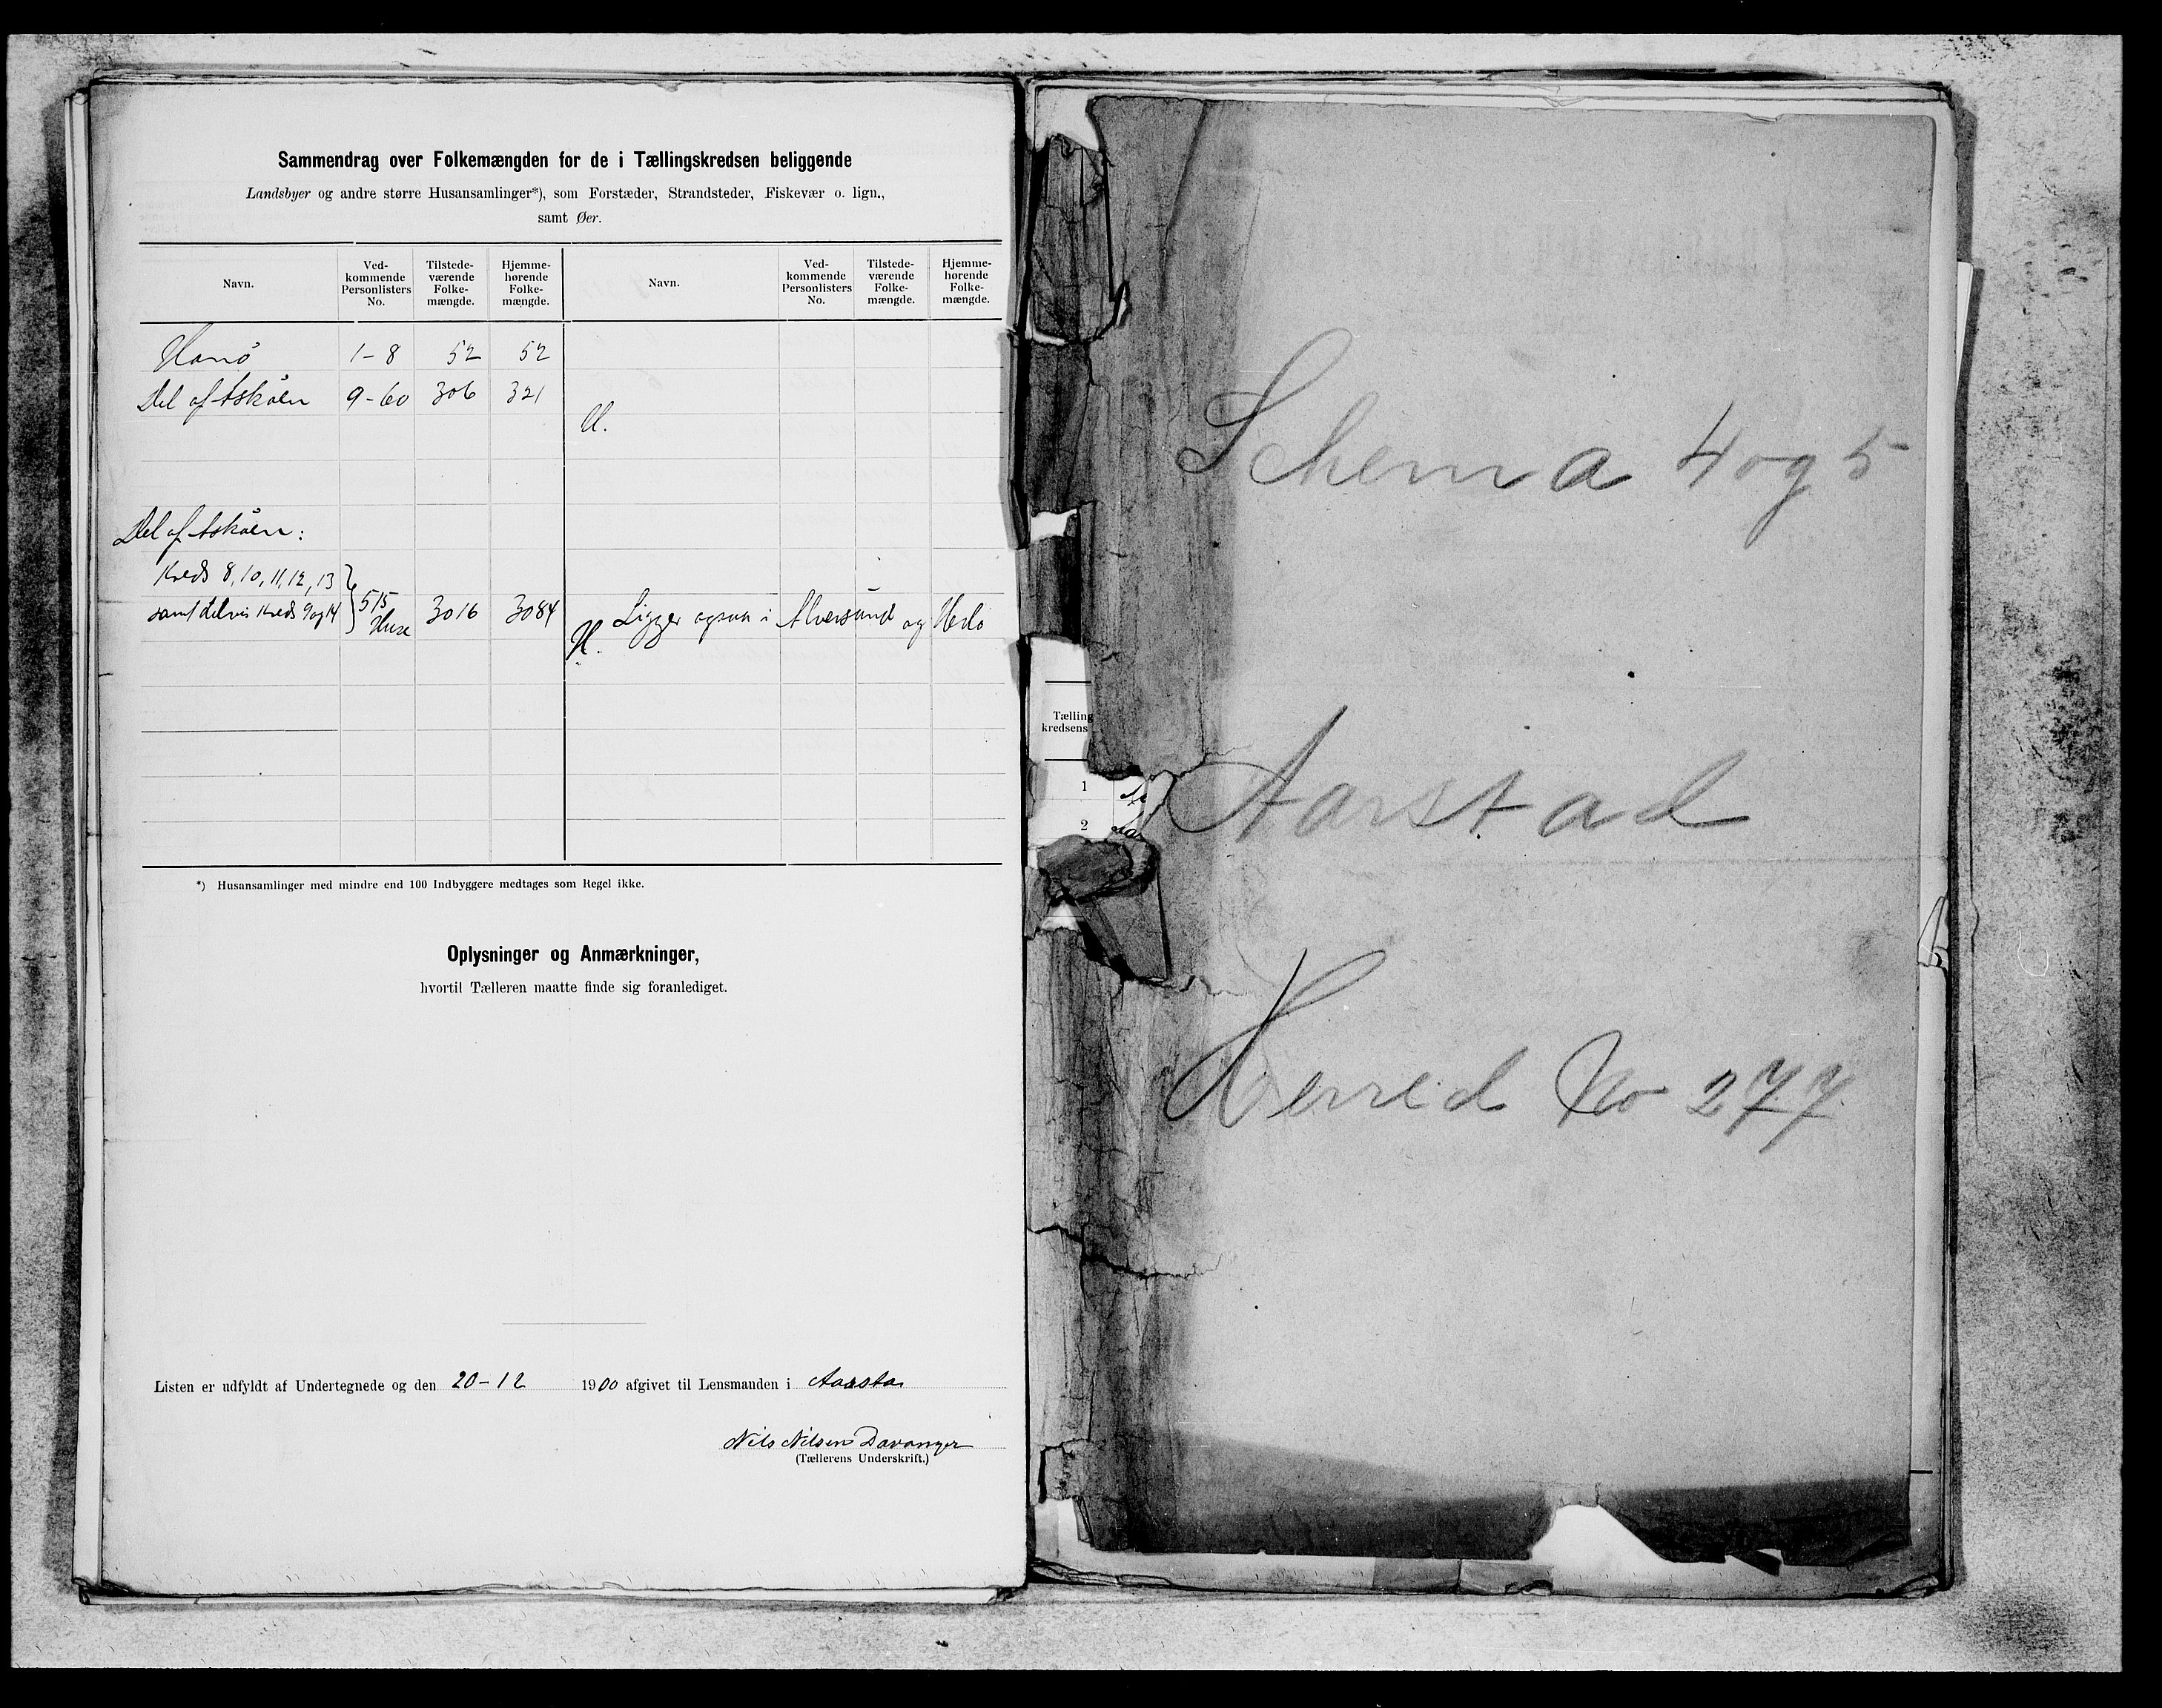 Sammendrag over Folkemængden for de i Tællingskredsen beliggende
Landsbyer og andre større Husansamlinger*), som Forstæder, Strandsteder, Fiskevær o. lign.,
samt Øer.
Navn. Ved-kommende Personlisters No. Tilstede-værende Folke-mængde. Hjemme-hørende Folke-mængde. Navn. Ved-kommende Personlisters No. Tilstede-værende Folke-mængde. Hjemme-hørende Folke-mængde.
Hanø 1-8 52 52
Del af Askøen 9-60 306 321
U.
Del af Askøen:
Kreds 8, 10, 11, 12, 13
samt delvis Kreds 9 og 14 515 Huse 3016 3084 Ligger ogsaa i Alversund og Herlø
*) Husansamlinger med mindre end 100 Indbyggere medtages som Regel ikke.
Oplysninger og Anmærkninger,
hvortil Tælleren maatte finde sig foranlediget.
Listen er udfyldt af Undertegnede og den 20-12 1900 afgivet til Lensmanden i
Nils Nilsen Davanger
(Tællerens Underskrift.)
Tælling
kredsens
1
2
Schema 4 og 5
Aarstad
Herred No 277